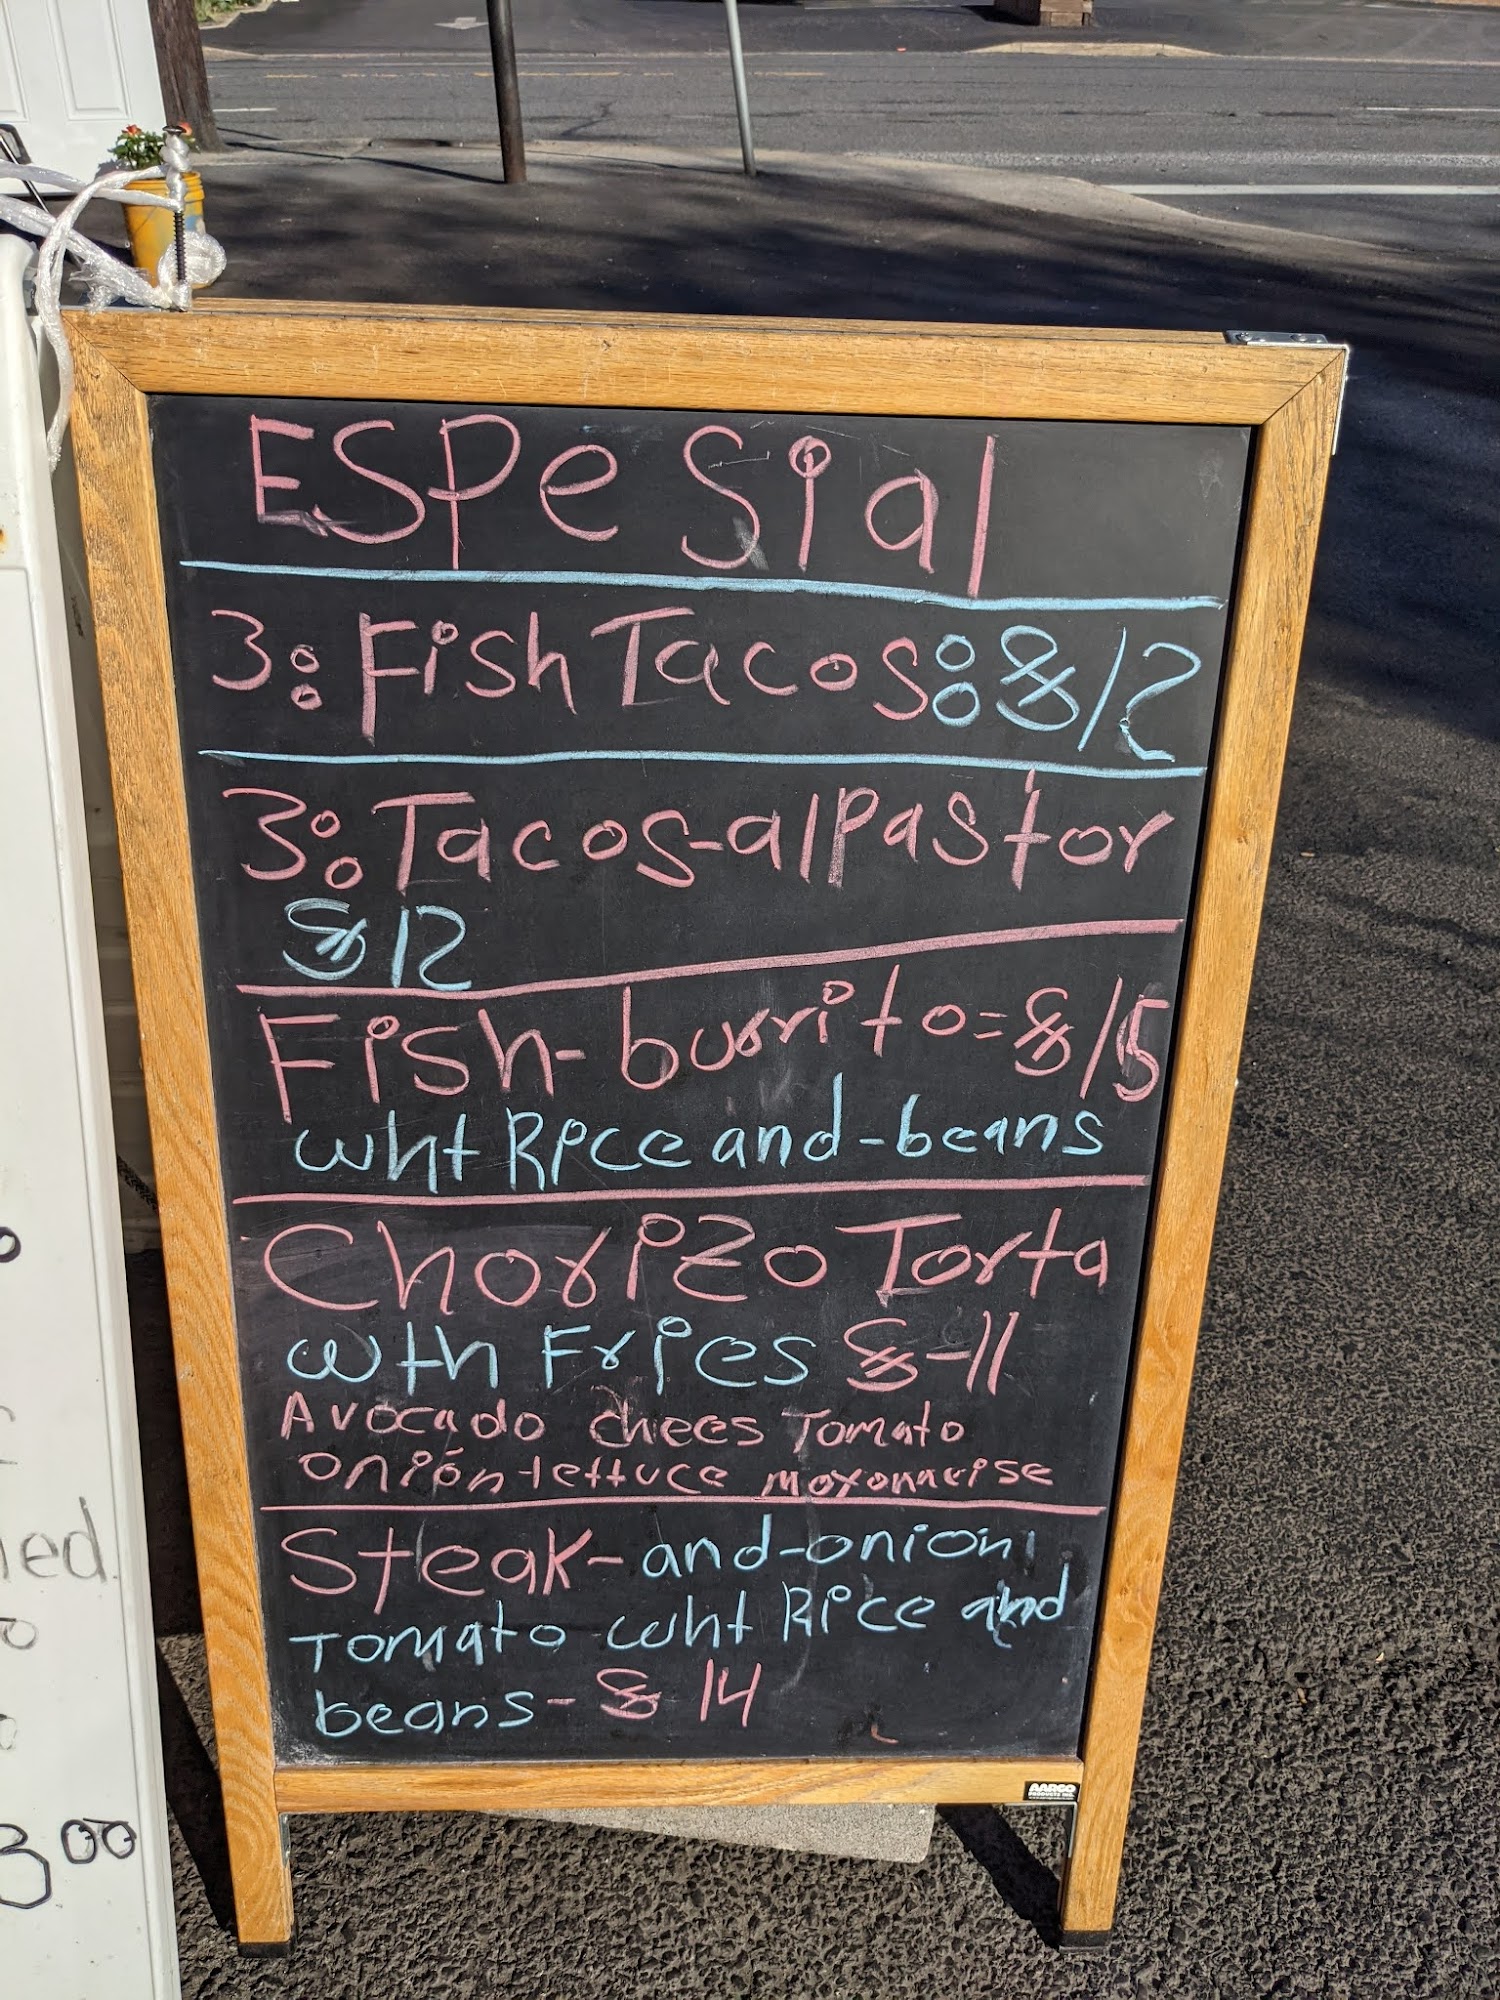 ESPeSial
3: Fish Tacos: $12
3: Tacos-al Pastor
$12
Fish-burrito=$15
wht Rice and-beans
Chorizo Torta
wth Fries $-11
Avocado chees Tomato
onion-lettuce moyonnaise
Steak-and-onion
Tomato wht Rice and
beans-$ 14
AARCO
PRODUCTS INC.
ned
3 00